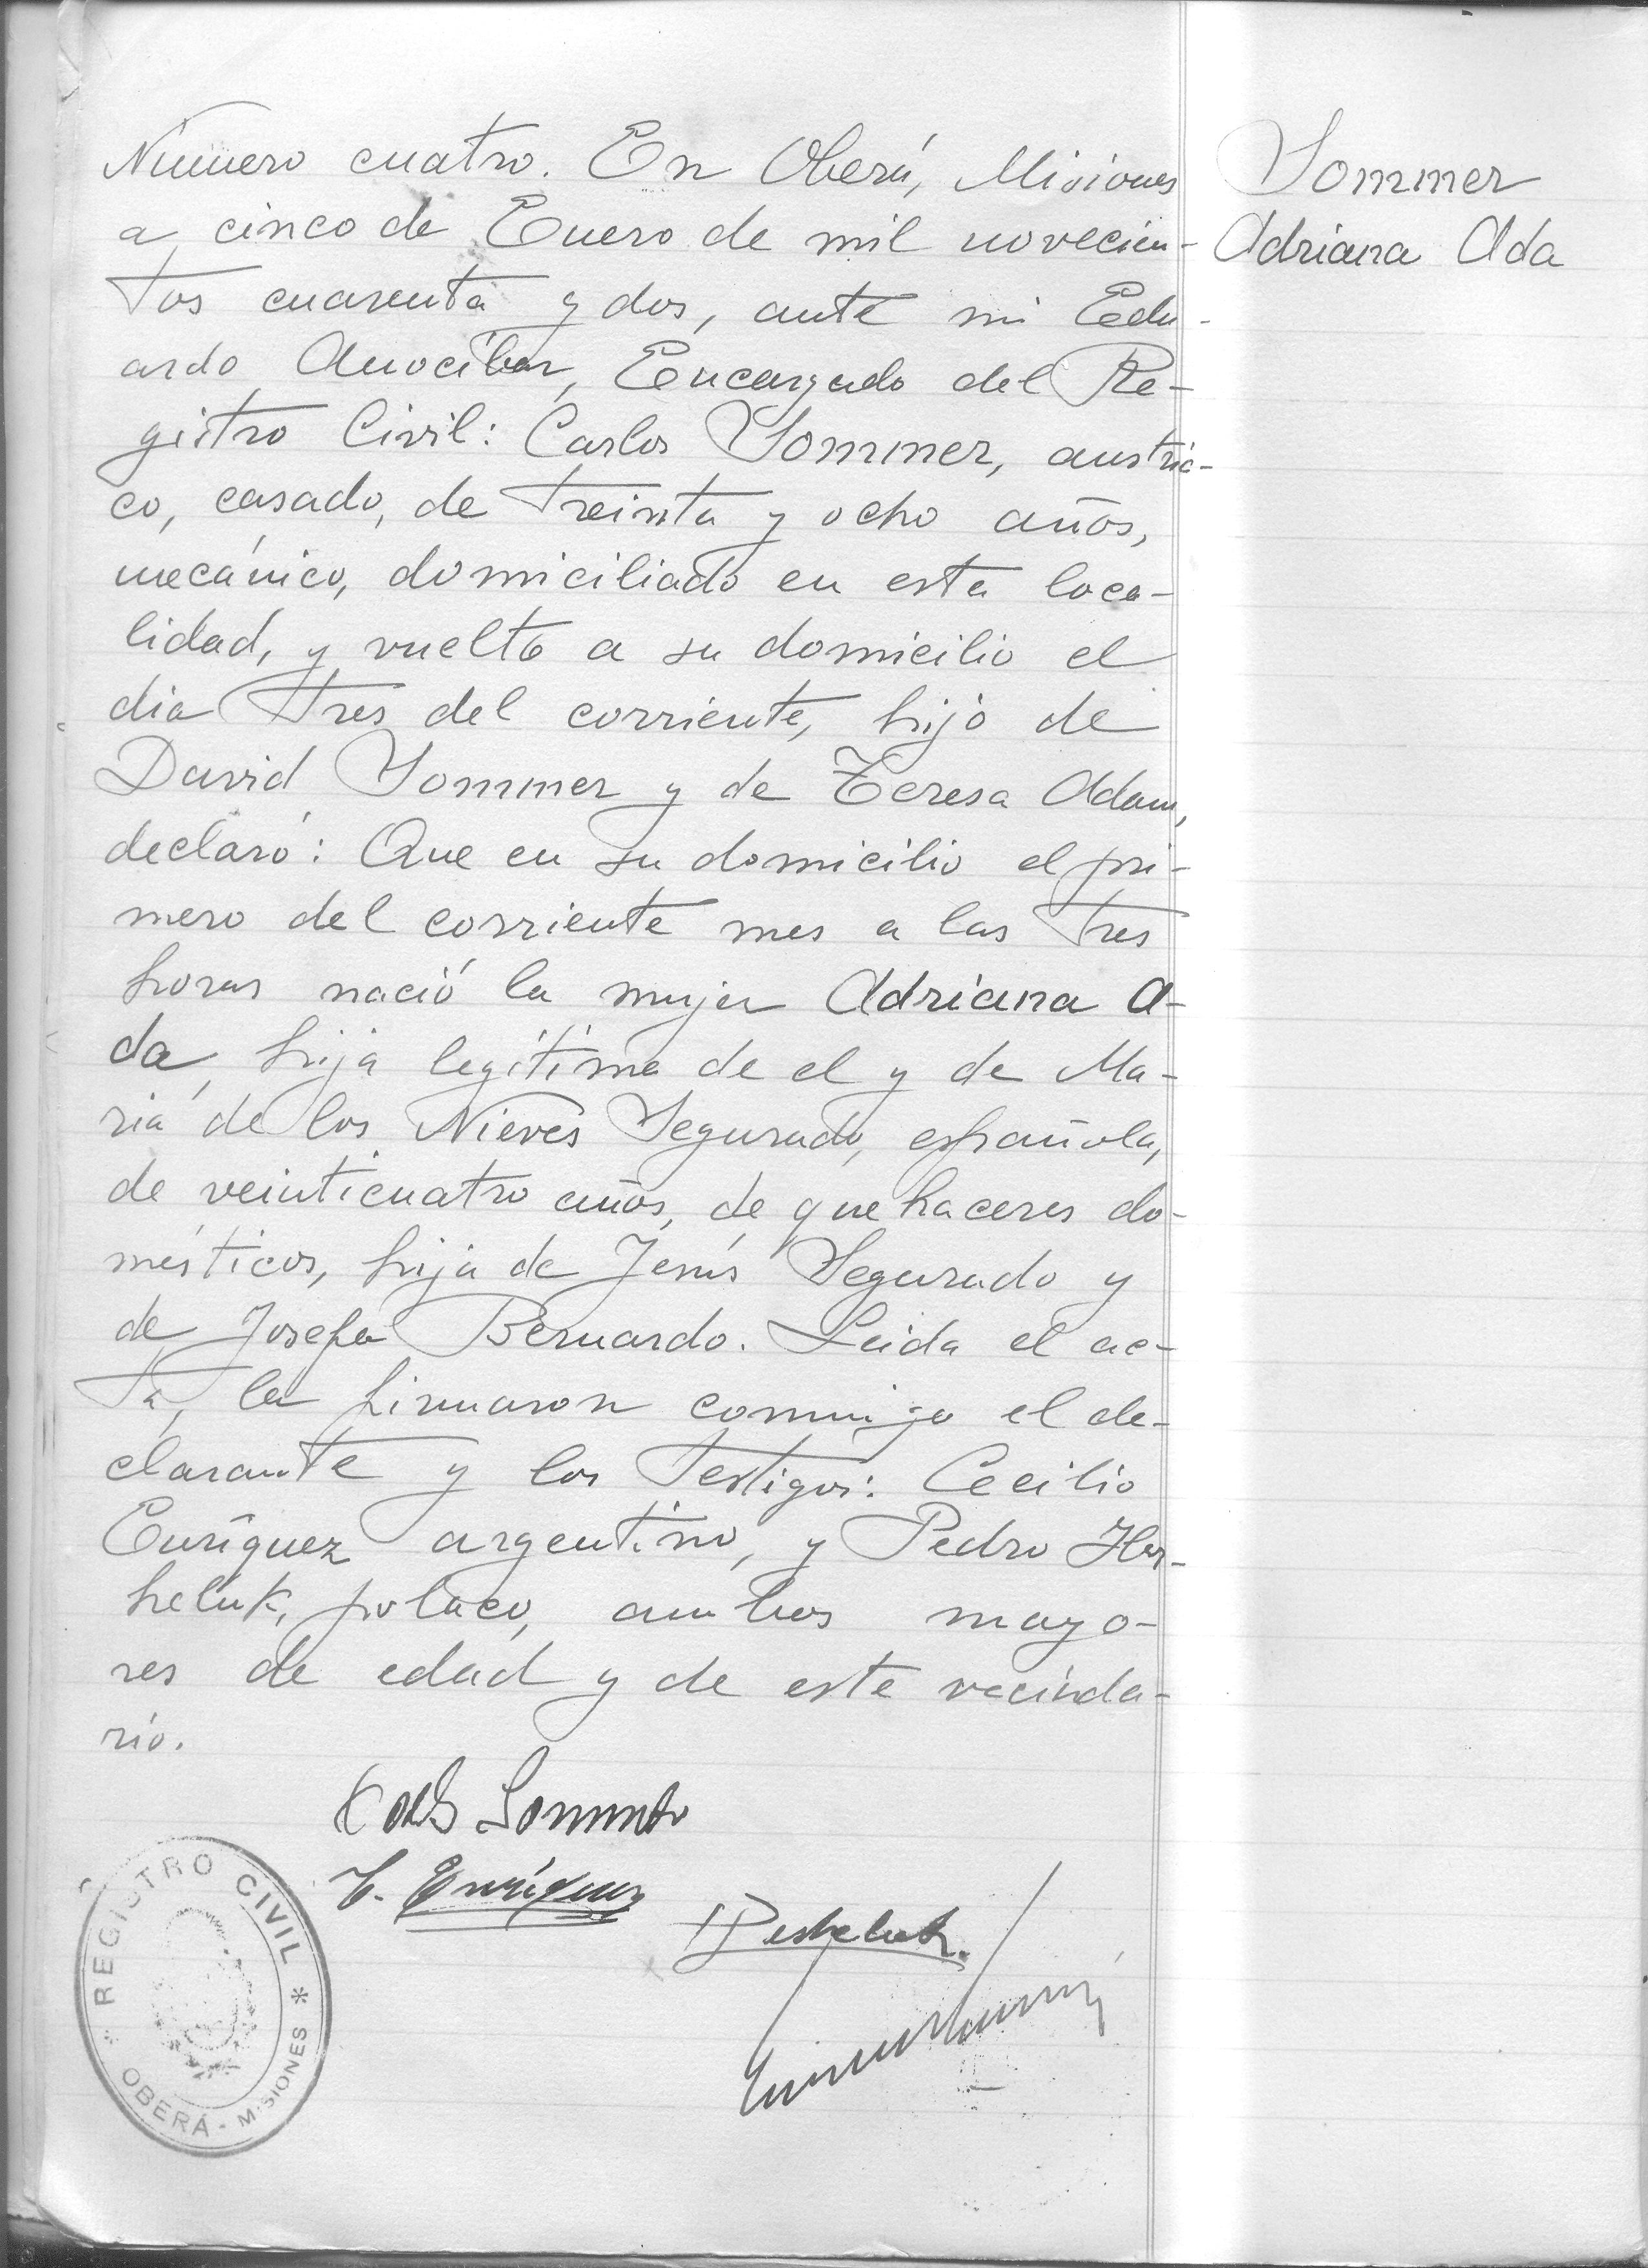 Número cuatro. En Oberá, Misiones
a cinco de Enero de mil novecien-
tos cuarenta y dos, ante mi Edu-
ardo Anocibar, Encargado del Re-
gistro Civil: Carlos Sommer, austria-
co, casado, de treinta y ocho años,
mecánico, domiciliado en esta loca-
lidad, y vuelto a su domicilio el
dia tres del corriente, hijo de
David Sommer y de Teresa Adam,
declaró: Que en su domicilio el pri-
mero del corriente mes a las tres
horas nació la mujer Adriana A-
da, hija legítima de el y de Ma-
ria de los Nieves Segurado, española,
de veinticuatro años, de quehaceres do-
mésticos, hija de Jesús Segurado y
de Josefa Bernardo. Leida el ac-
ta, la firmaron conmigo el de-
clarante y los testigos: Cecilio
Enríquez argentino, y Pedro
heluk, polaco, ambos mayo-
res de edad y de este vecinda-
rio.
Sommer
Adriana Ada
C. Enríquez
REGISTRO CIVIL
OBERÁ - MISIONES